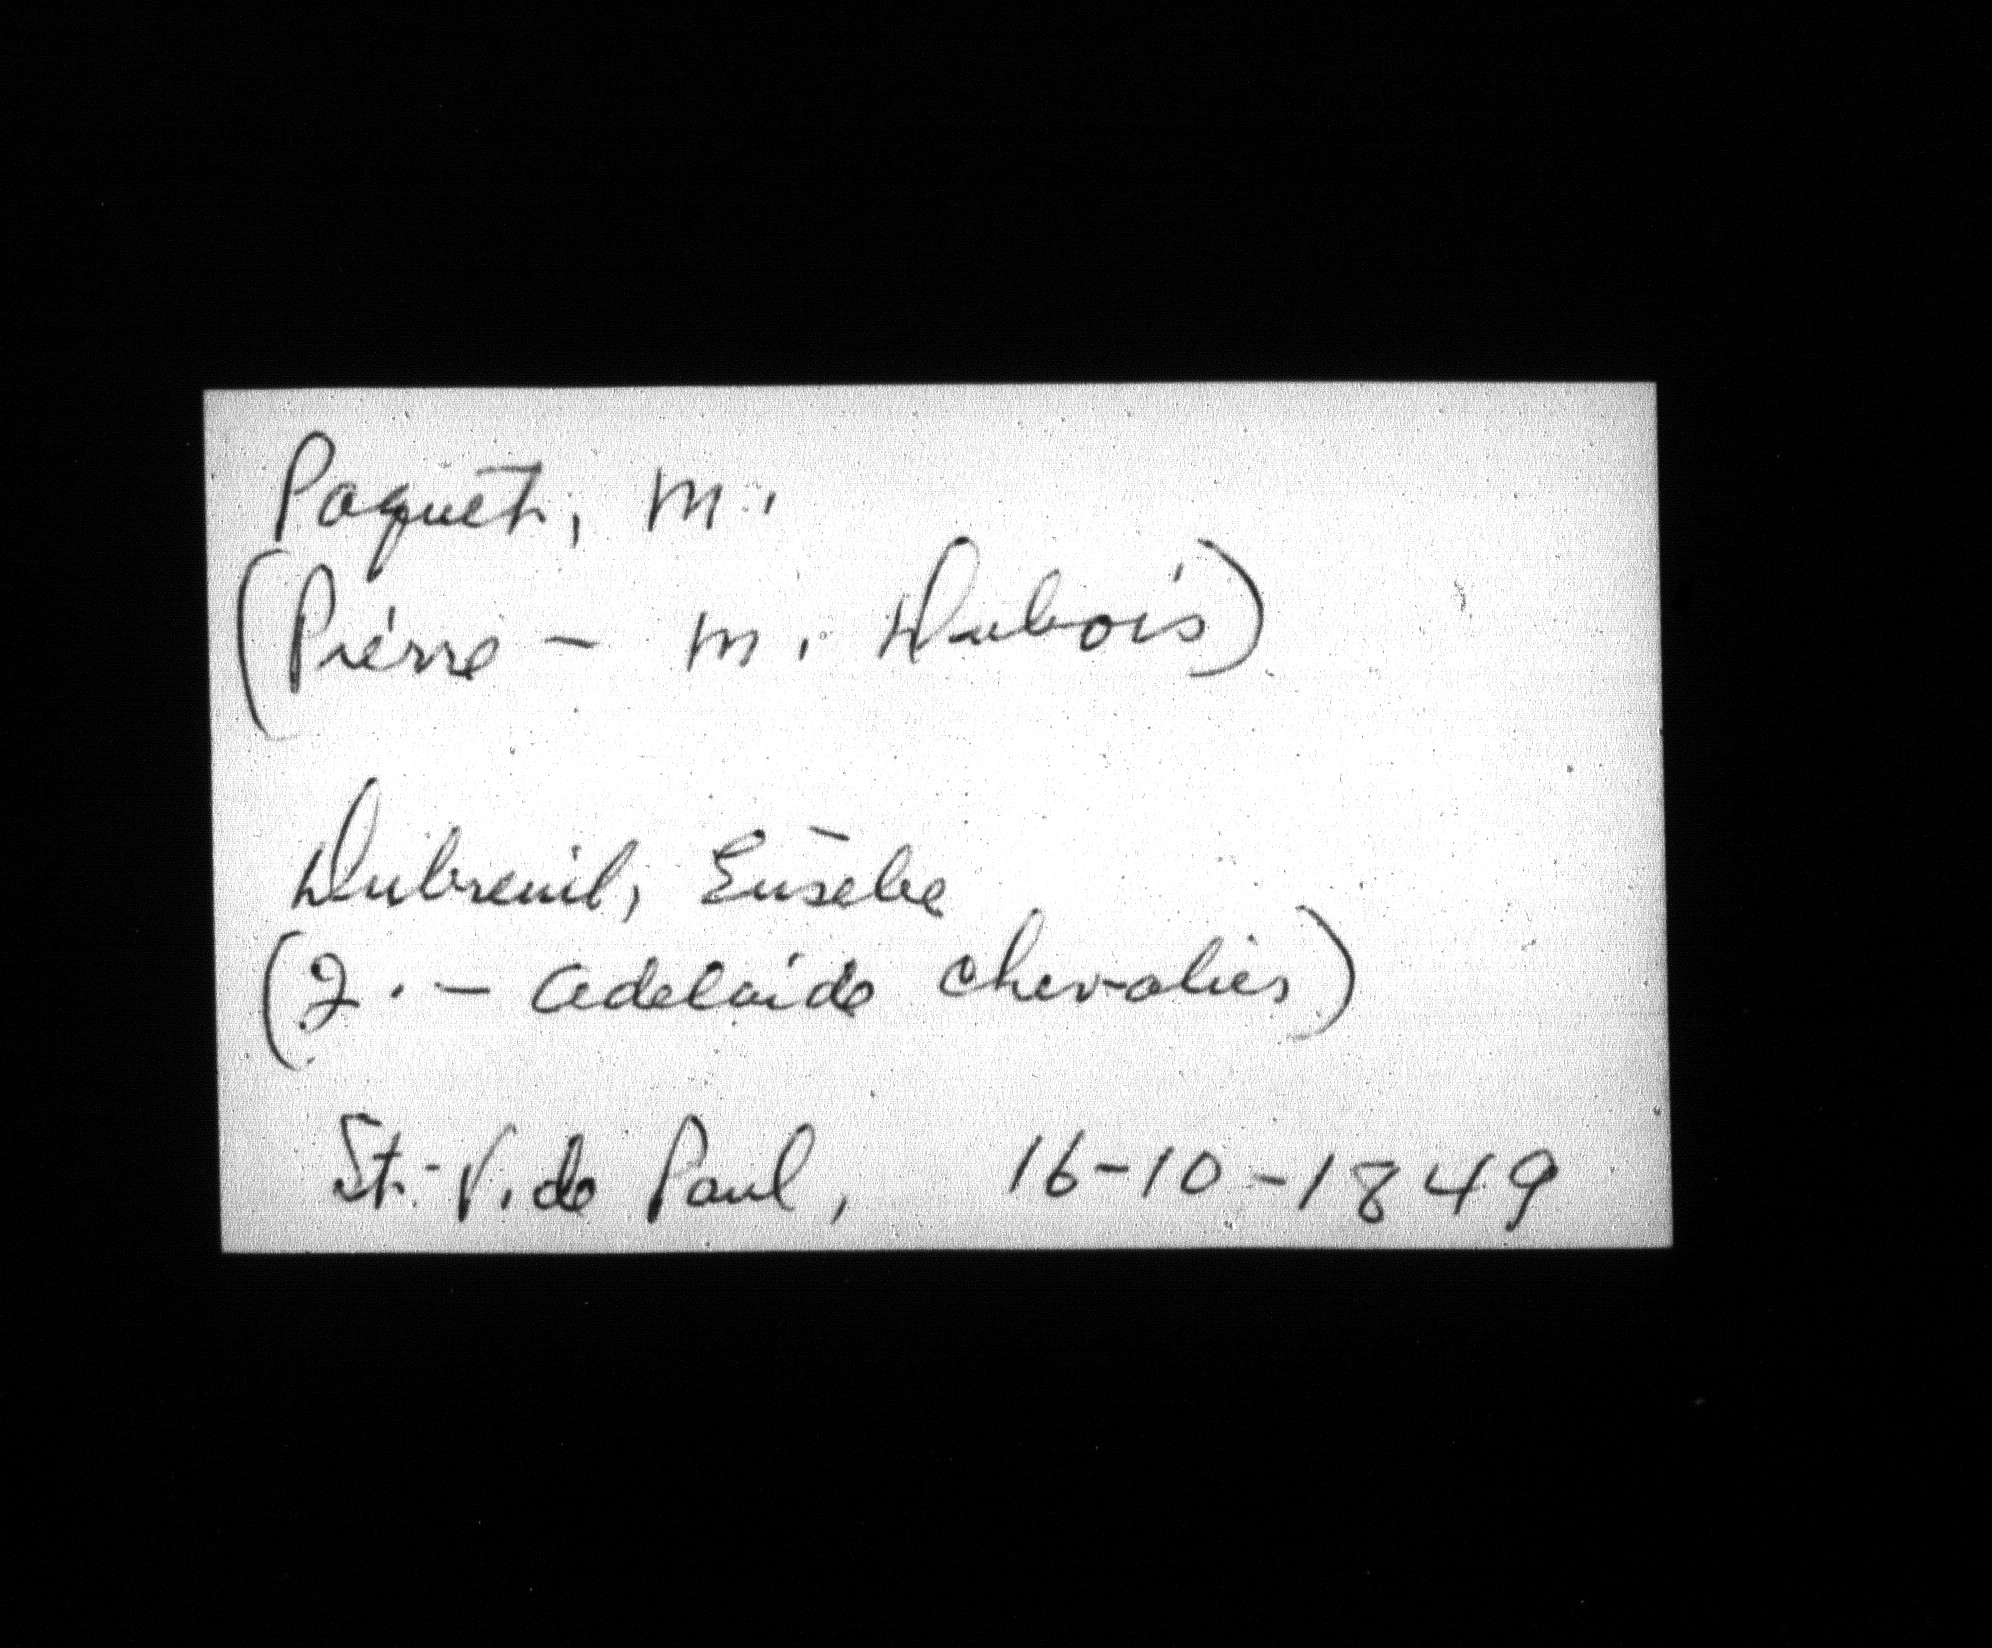 Paquet, M.
(Pierre - M. Dubois)
Dubreuil, Eusèbe
(J. - Adelaide Chevalier)
St-V. de Paul, 16-10-1849